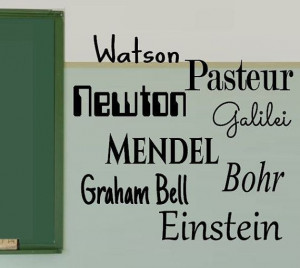 Watson
Pasteur
Newton
Galilei
MENDEL
Graham Bell
Bohr
Einstein